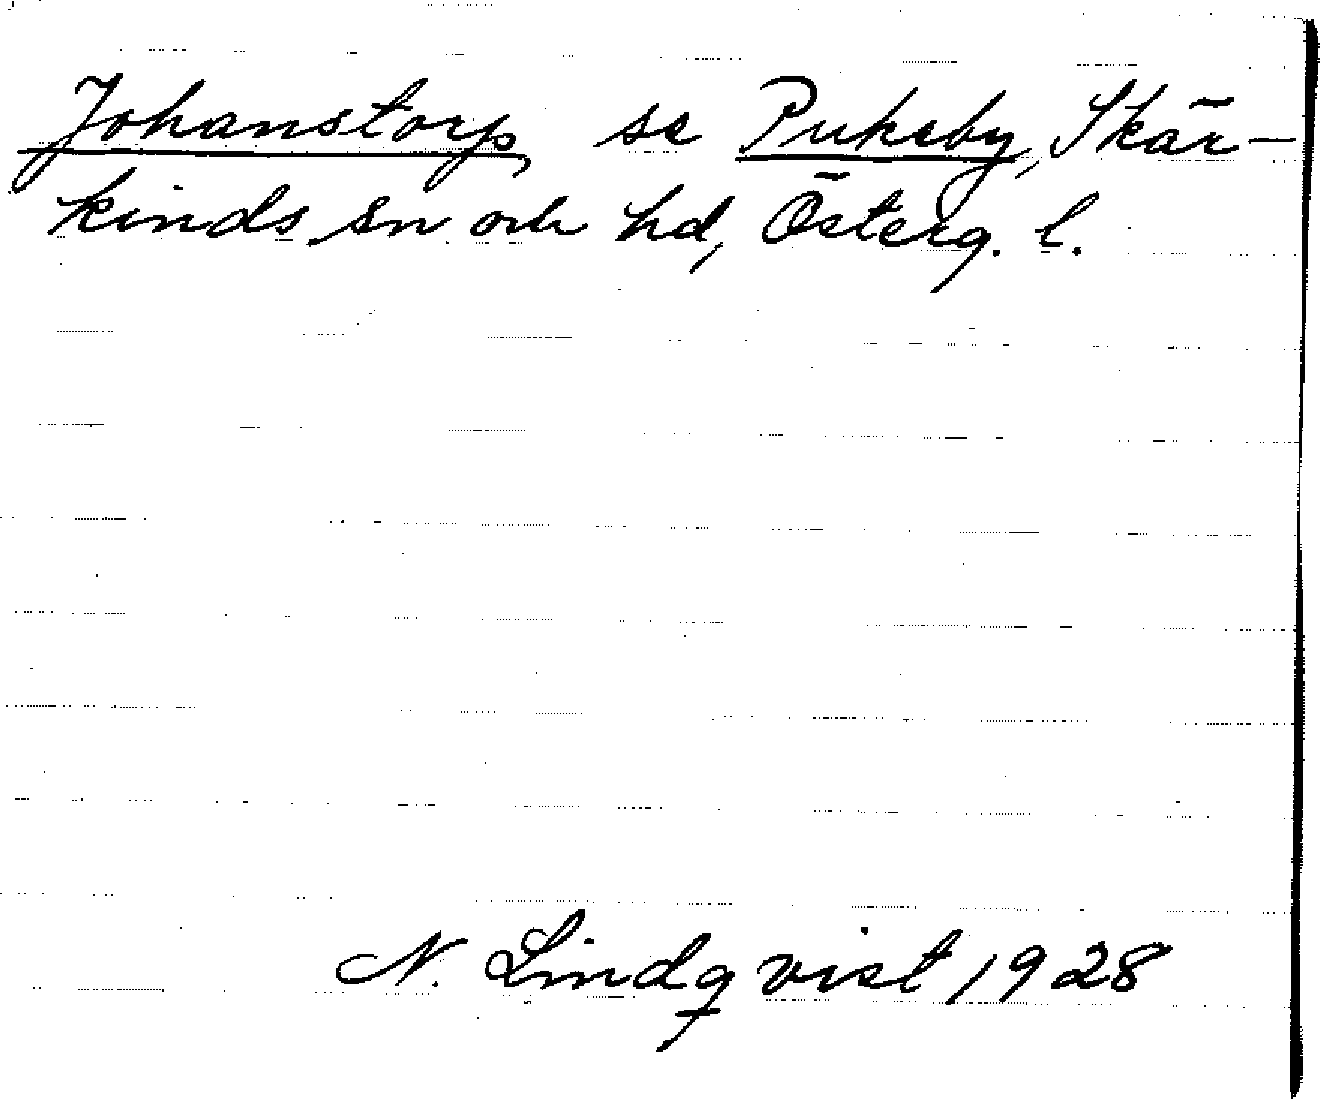 Johanstorp, se Pukeby, Skär-
kinds sn och hd, Österg. l.
N. Lindqvist 1928